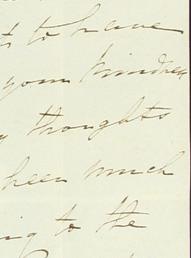 to have
your kindness
thoughts
been much
to the